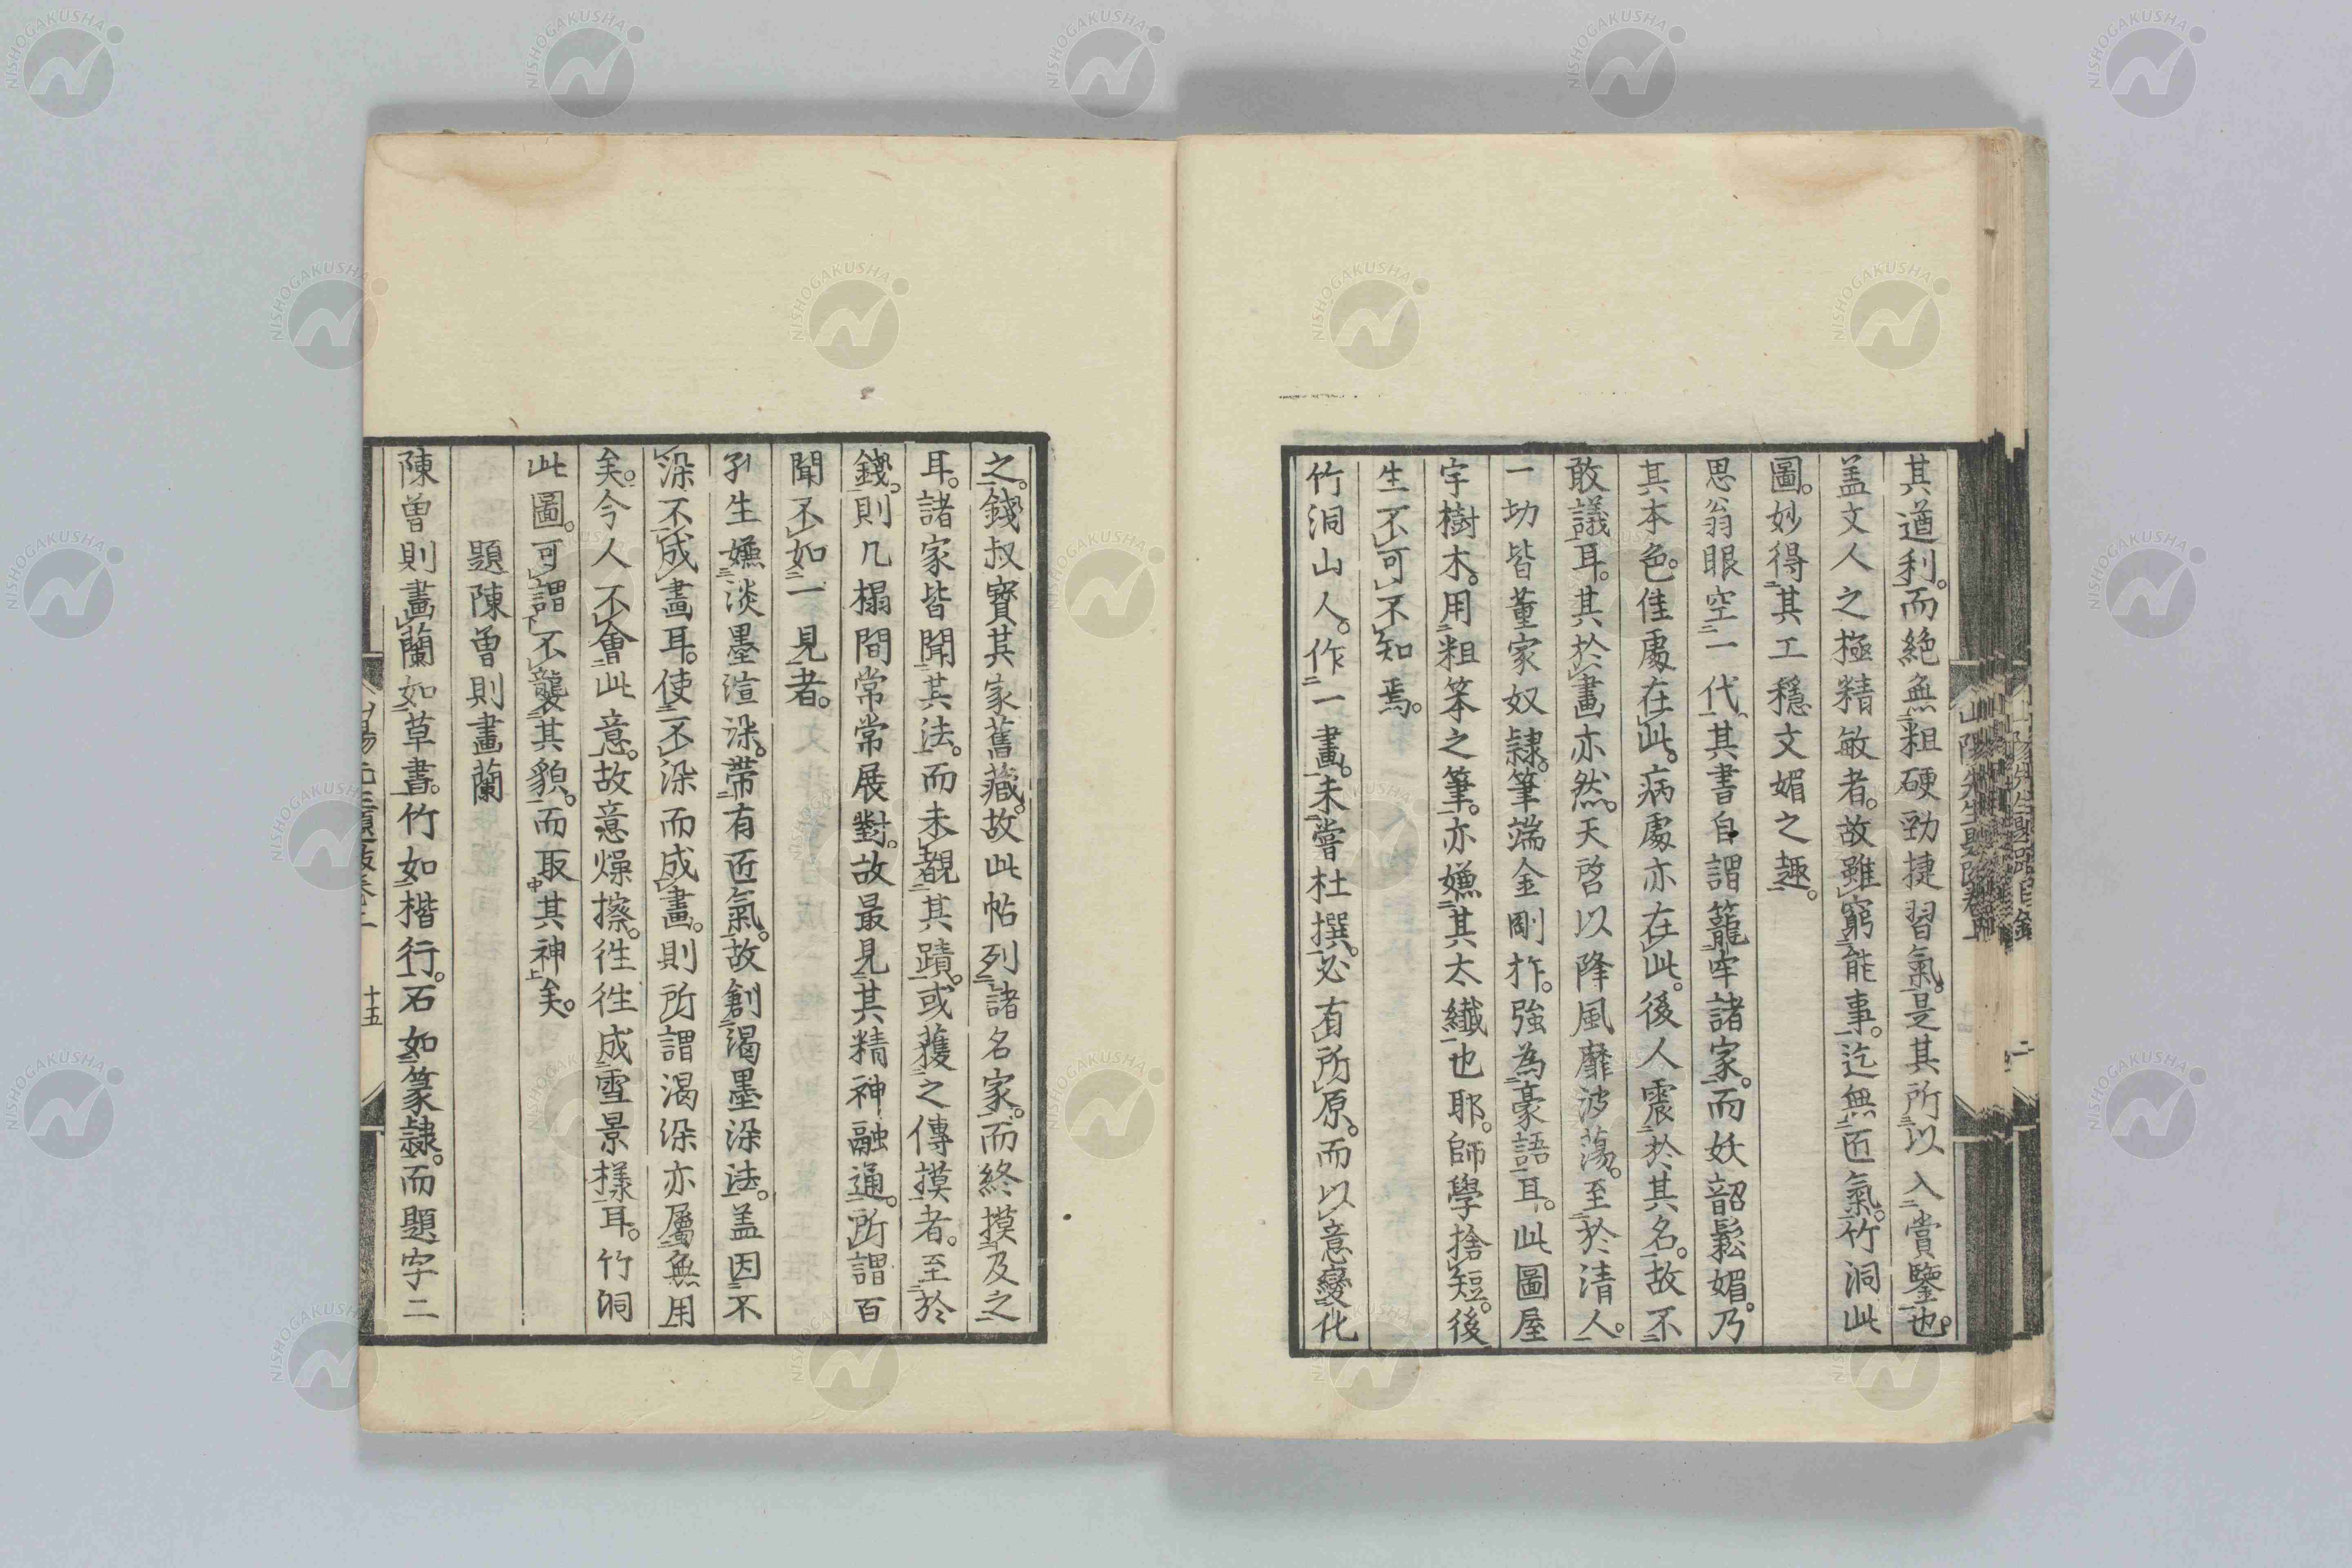 其遒利。而絶無粗硬勁捷習氣。是其所以入賞鑒也。
盖文人之極精敏者。故雖窮能事。迄無匠氣。竹洞此
圖。妙得其工穩文媚之趣。
思翁眼空一代。其書自謂籠牢諸家。而妖韶鬆媚。乃
其本色。佳處在此。病處亦在此。後人震於其名。故不
敢議耳。其於畫亦然。天啓以降風靡波蕩。至於清人。
一切皆董家奴隷。筆端金剛杵。強為豪語耳。此圖屋
宇樹木。用粗笨之筆。亦嫌其太纖也耶。師學捨短。後
生不可不知焉。
竹洞山人。作一畫。未嘗杜撰。必有所原。而以意變化
之。錢叔寶其家舊藏。故此帖列諸名家。而終摸及之
耳。諸家皆聞其法。而未覩其蹟。或獲之傳摸者。至於
錢。則几榻間常常展對。故最見其精神融通。所謂百
聞不如一見者。
孔生嫌淡墨渲染。帶有匠氣。故創渴墨染法。盖因不
染不成畫耳。使不染而成畫。則所謂渴染亦屬無用
矣。今人不會此意。故意燥擦。徃徃成雪景樣耳。竹洞
此圖。可謂不襲其貌。而取其神矣。
題陳曾則畫蘭
陳曾則畫蘭如草書。竹如楷行。石如篆隷。而題字二
十五